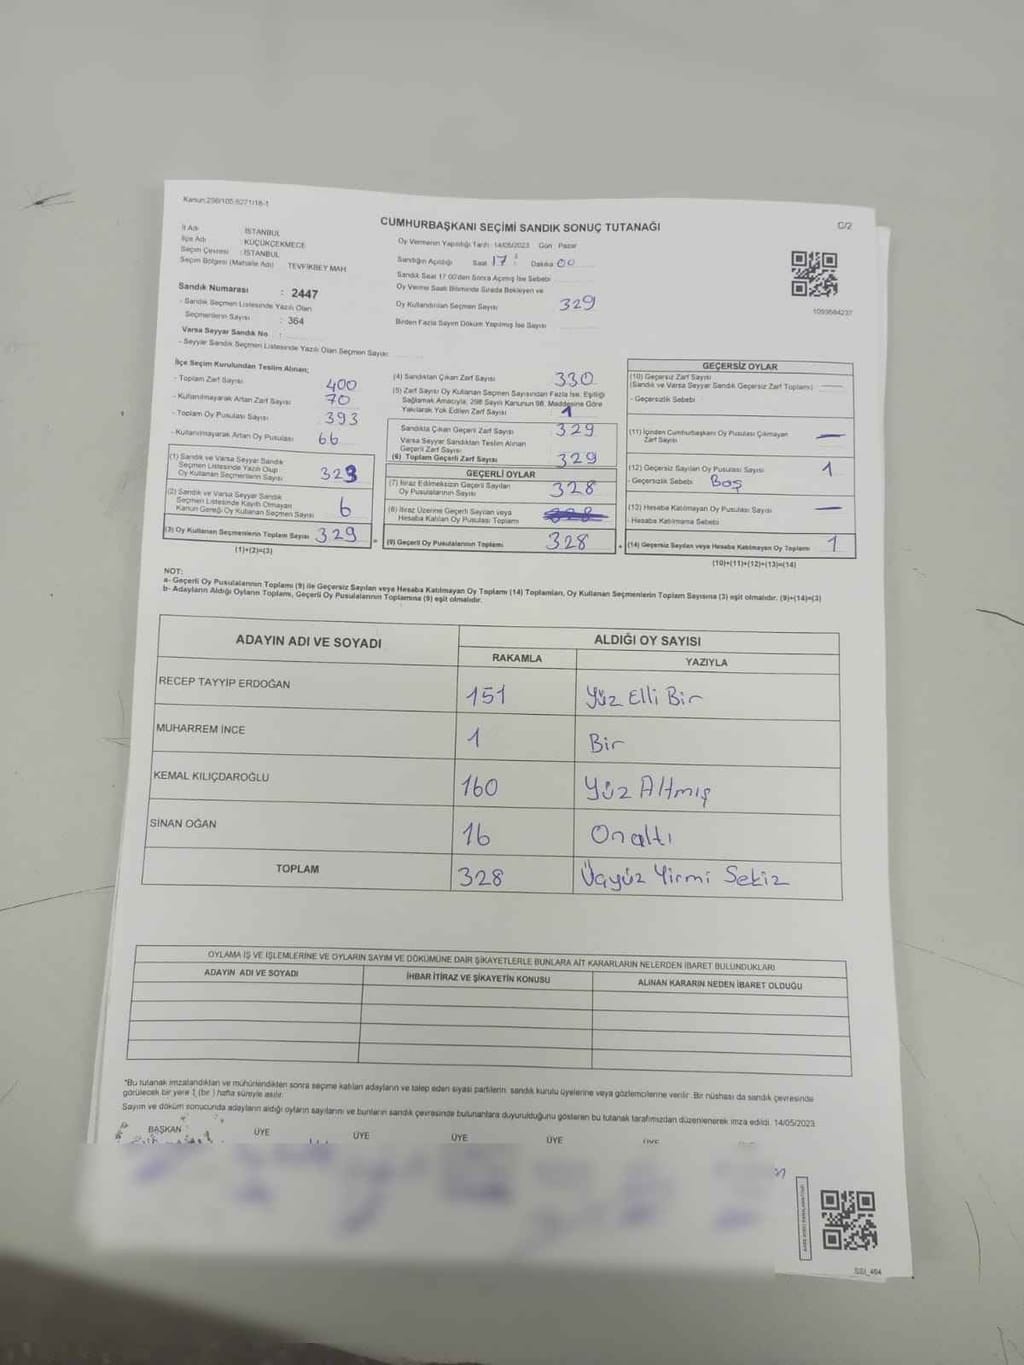 Kanun:298/105-6271/18-1
CUMHURBAŞKANI SEÇİMİ SANDIK SONUÇ TUTANAĞI
C/2
İl Adı : İSTANBUL
İlçe Adı : KÜÇÜKÇEKMECE
Seçim Çevresi : İSTANBUL
Seçim Bölgesi (Mahalle Adı) : TEVFİKBEY MAH
Sandık Numarası : 2447
- Sandık Seçmen Listesinde Yazılı Olan
Seçmenlerin Sayısı : 364
Varsa Seyyar Sandık No :
- Seyyar Sandık Seçmen Listesinde Yazılı Olan Seçmen Sayısı
Oy Vermenin Yapıldığı Tarih: 14/05/2023 Gün : Pazar
Sandığın Açıldığı Saat 17 : Dakika 00
Sandık Saat 17:00'den Sonra Açılmış İse Sebebi
Oy Verme Saati Bitiminde Sırada Bekleyen ve
Oy Kullandırılan Seçmen Sayısı 329
Birden Fazla Sayım Döküm Yapılmış İse Sayısı
1093584237
İlçe Seçim Kurulundan Teslim Alınan;
- Toplam Zarf Sayısı 400
- Kullanılmayarak Artan Zarf Sayısı 70
- Toplam Oy Pusulası Sayısı 393
- Kullanılmayarak Artan Oy Pusulası 66
(1) Sandık ve Varsa Seyyar Sandık
Seçmen Listesinde Yazılı Olup
Oy Kullanan Seçmenlerin Sayısı 323
(2) Sandık ve Varsa Seyyar Sandık
Seçmen Listesinde Kayıtlı Olmayan
Kanun Gereği Oy Kullanan Seçmen Sayısı 6
(3) Oy Kullanan Seçmenlerin Toplam Sayısı 329
(1)+(2)=(3)
(4) Sandıktan Çıkan Zarf Sayısı 330
(5) Zarf Sayısı Oy Kullanan Seçmen Sayısından Fazla İse, Eşitliği
Sağlamak Amacıyla, 298 Sayılı Kanunun 98. Maddesine Göre
Yakılarak Yok Edilen Zarf Sayısı 1
Sandıkta Çıkan Geçerli Zarf Sayısı 329
Varsa Seyyar Sandıktan Teslim Alınan
Geçerli Zarf Sayısı
(6) Toplam Geçerli Zarf Sayısı 329
GEÇERLİ OYLAR
(7) İtiraz Edilmeksizin Geçerli Sayılan
Oy Pusulalarının Sayısı 328
(8) İtiraz Üzerine Geçerli Sayılan veya
Hesaba Katılan Oy Pusulası Toplamı
(9) Geçerli Oy Pusulalarının Toplamı 328
GEÇERSİZ OYLAR
(10) Geçersiz Zarf Sayısı
(Sandık ve Varsa Seyyar Sandık Geçersiz Zarf Toplamı) —
- Geçersizlik Sebebi
(11) İçinden Cumhurbaşkanı Oy Pusulası Çıkmayan
Zarf Sayısı —
(12) Geçersiz Sayılan Oy Pusulası Sayısı 1
- Geçersizlik Sebebi Boş
(13) Hesaba Katılmayan Oy Pusulası Sayısı —
- Hesaba Katılmama Sebebi
(14) Geçersiz Sayılan veya Hesaba Katılmayan Oy Toplamı 1
(10)+(11)+(12)+(13)=(14)
NOT:
a- Geçerli Oy Pusulalarının Toplamı (9) ile Geçersiz Sayılan veya Hesaba Katılmayan Oy Toplamı (14) Toplamları, Oy Kullanan Seçmenlerin Toplam Sayısına (3) eşit olmalıdır. (9)+(14)=(3)
b- Adayların Aldığı Oyların Toplamı, Geçerli Oy Pusulalarının Toplamına (9) eşit olmalıdır.
ADAYIN ADI VE SOYADI
ALDIĞI OY SAYISI
RAKAMLA YAZIYLA
RECEP TAYYİP ERDOĞAN 151 Yüz Elli Bir
MUHARREM İNCE 1 Bir
KEMAL KILIÇDAROĞLU 160 Yüz Altmış
SİNAN OĞAN 16 Onaltı
TOPLAM 328 Üçyüz Yirmi Sekiz
OYLAMA İŞ VE İŞLEMLERİNE VE OYLARIN SAYIM VE DÖKÜMÜNE DAİR ŞİKAYETLERLE BUNLARA AİT KARARLARIN NELERDEN İBARET BULUNDUKLARI
ADAYIN ADI VE SOYADI İHBAR İTİRAZ VE ŞİKAYETİN KONUSU ALINAN KARARIN NEDEN İBARET OLDUĞU
*Bu tutanak imzalandıktan ve mühürlendikten sonra seçime katılan adayların ve talep eden siyasi partilerin sandık kurulu üyelerine veya gözlemcilerine verilir. Bir nüshası da sandık çevresinde
görülecek bir yere 1 (bir ) hafta süreyle asılır.
Sayım ve döküm sonucunda adayların aldığı oyların sayılarını ve bunların sandık çevresinde bulunanlara duyurulduğunu gösteren bu tutanak tarafımızdan düzenlenerek imza edildi. 14/05/2023
BAŞKAN ÜYE ÜYE ÜYE ÜYE ÜYE